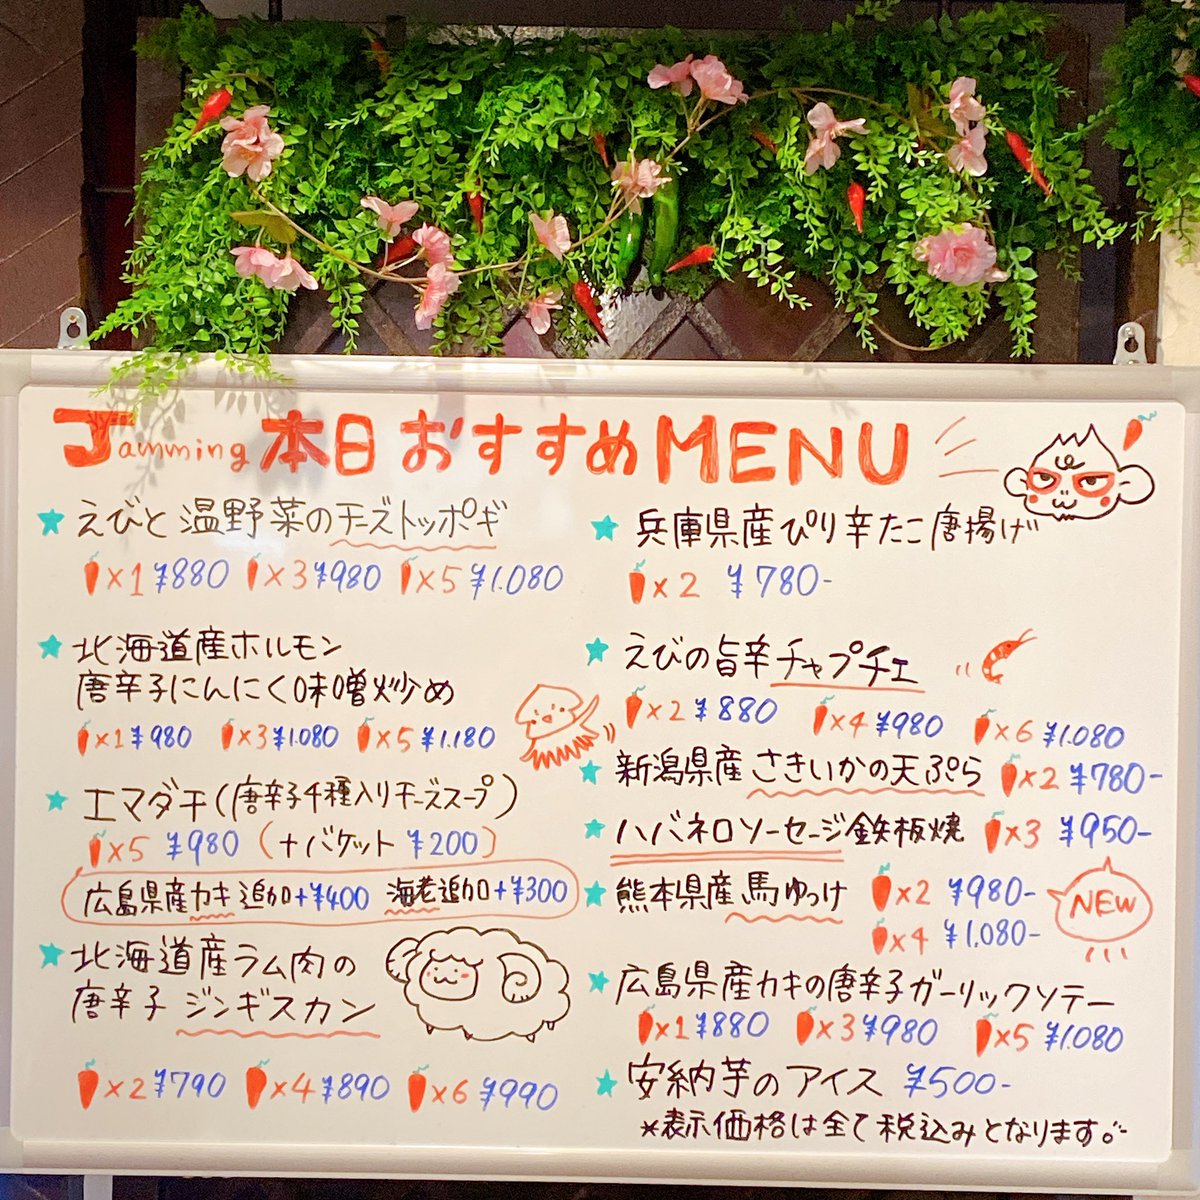 Jamming 本日おすすめMENU
★えびと温野菜のチーズトッポギ
×1 ¥880 ×3 ¥980 ×5 ¥1.080
★北海道産ホルモン
唐辛子にんにく味噌炒め
×1 ¥980 ×3 ¥1.080 ×5 ¥1.180
★エマダチ(唐辛子4種入りチーズスープ)
×5 ¥980 (+バケット ¥200)
広島県産カキ追加+¥400 海老追加+¥300
★北海道産ラム肉の
唐辛子 ジンギスカン
×2 ¥790 ×4 ¥890 ×6 ¥990
★兵庫県産ぴり辛たこ唐揚げ
×2 ¥780-
★えびの旨辛チャプチェ
×2 ¥880 ×4 ¥980 ×6 ¥1.080
★新潟県産さきいかの天ぷら ×2 ¥780-
★ハバネロソーセージ鉄板焼 ×3 ¥950-
★熊本県産馬ゆっけ ×2 ¥980-
×4 ¥1.080-
NEW
★広島県産カキの唐辛子ガーリックソテー
×1 ¥880 ×3 ¥980 ×5 ¥1.080
★安納芋のアイス ¥500-
*表示価格は全て税込みとなります。